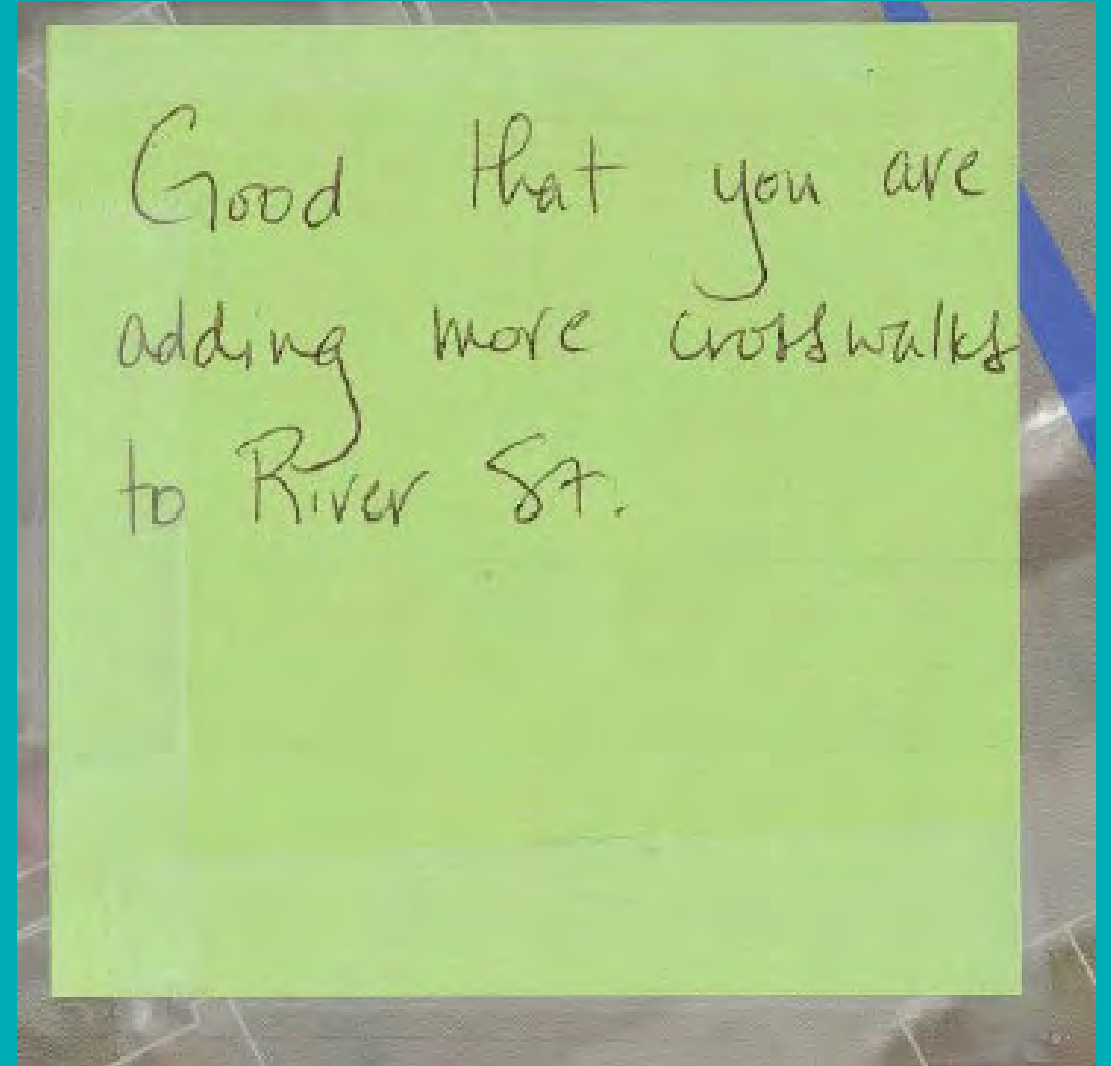 Good that you are
adding more crosswalks
to River St.